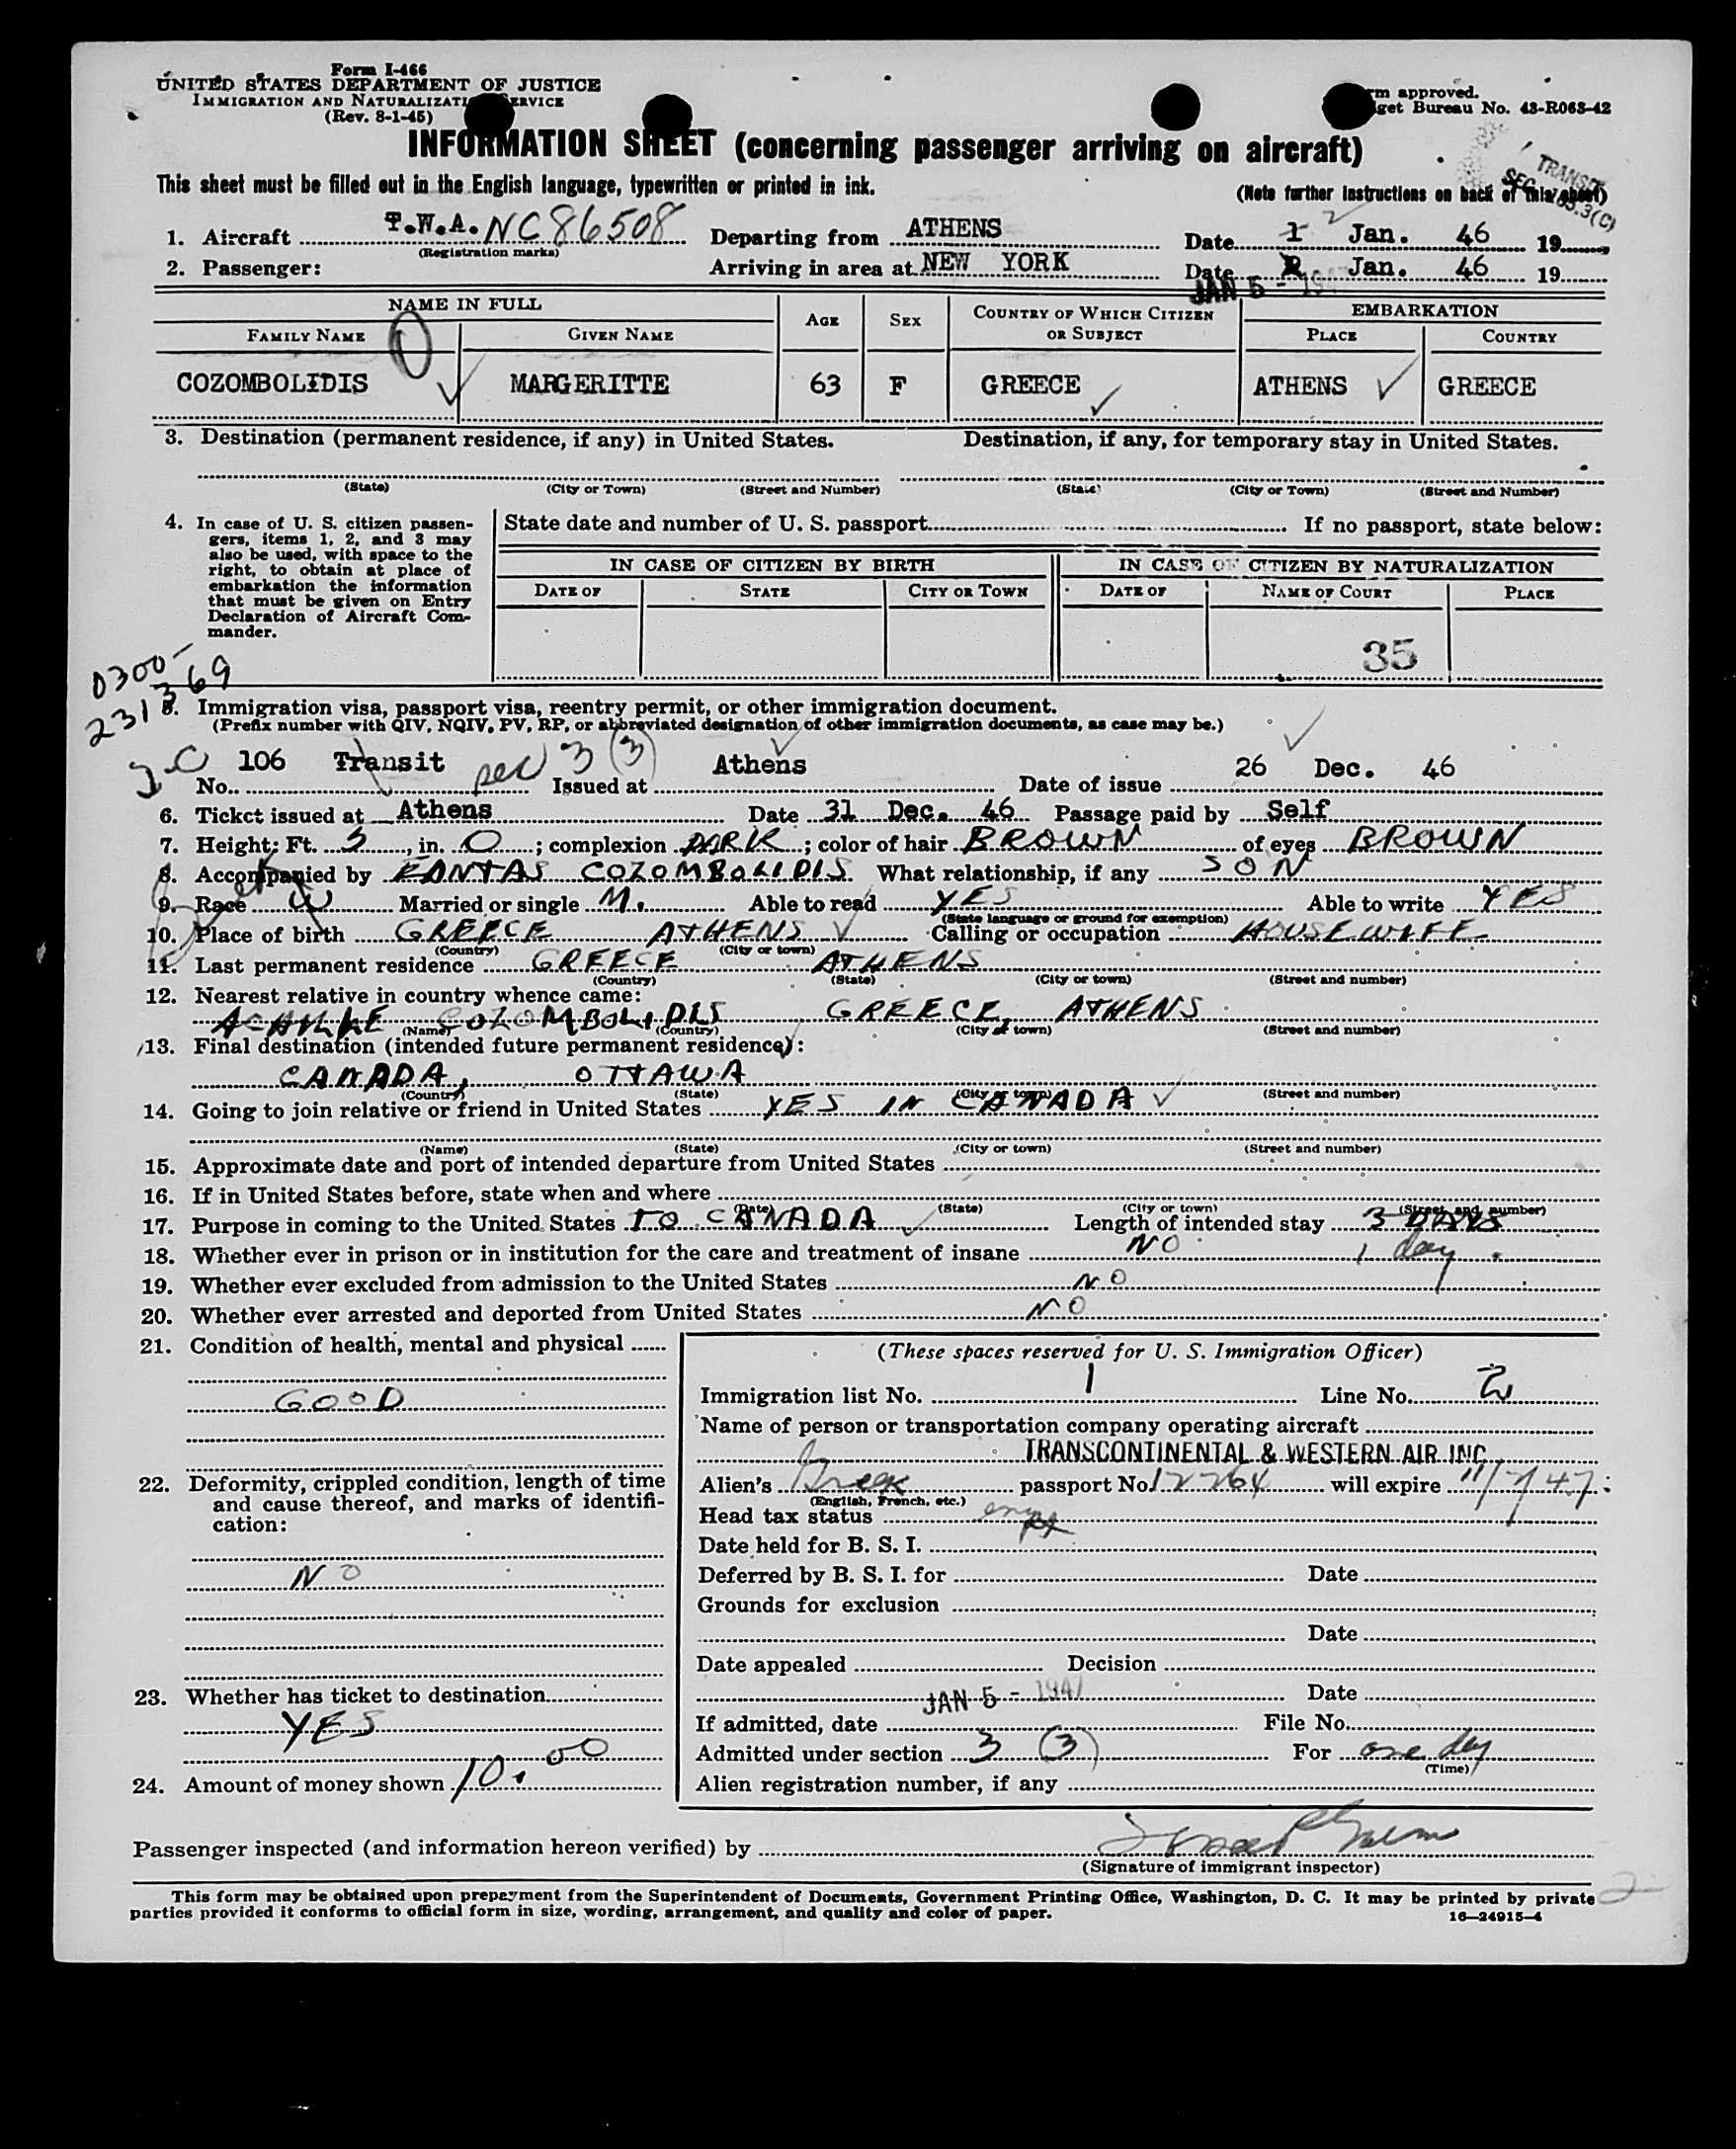 Form I-466
UNITED STATES DEPARTMENT OF JUSTICE
IMMIGRATION AND NATURALIZATION SERVICE
(Rev. 8-1-45)
Form approved.
Budget Bureau No. 43-R063-42
INFORMATION SHEET (concerning passenger arriving on aircraft)
This sheet must be filled out in the English language, typewritten or printed in ink.
(Note further instructions on back of this sheet)
TRANSIT
SEC. 3(C)
1. Aircraft T.W.A. NC86508 Departing from ATHENS Date 1 2 Jan. 46 19
(Registration marks)
2. Passenger: Arriving in area at NEW YORK Date 2 Jan. 46 19
JAN 5 - 1947
NAME IN FULL AGE SEX COUNTRY OF WHICH CITIZEN OR SUBJECT EMBARKATION
FAMILY NAME GIVEN NAME PLACE COUNTRY
COZOMBOLIDIS MARGERITTE 63 F GREECE ATHENS GREECE
3. Destination (permanent residence, if any) in United States. Destination, if any, for temporary stay in United States.
(State) (City or Town) (Street and Number) (State) (City or Town) (Street and Number)
4. In case of U. S. citizen passengers, items 1, 2, and 3 may also be used, with space to the right, to obtain at place of embarkation the information that must be given on Entry Declaration of Aircraft Commander.
State date and number of U. S. passport If no passport, state below:
IN CASE OF CITIZEN BY BIRTH IN CASE OF CITIZEN BY NATURALIZATION
DATE OF STATE CITY OR TOWN DATE OF NAME OF COURT PLACE
35
0300-
231369
5. Immigration visa, passport visa, reentry permit, or other immigration document.
(Prefix number with QIV, NQIV, PV, RP, or abbreviated designation of other immigration documents, as case may be.)
No. 106 Transit sec 3 (3) Issued at Athens Date of issue 26 Dec. 46
6. Ticket issued at Athens Date 31 Dec. 46 Passage paid by Self
7. Height: Ft. 5, in. 0; complexion DARK; color of hair BROWN of eyes BROWN
8. Accompanied by FANTAS COZOMBOLIDIS What relationship, if any SON
9. Race W Married or single M. Able to read YES Able to write YES
(State language or ground for exemption)
10. Place of birth GREECE ATHENS Calling or occupation HOUSEWIFE
(Country) (City or town)
11. Last permanent residence GREECE ATHENS
(Country) (State) (City or town) (Street and number)
12. Nearest relative in country whence came:
COZOMBOLIDIS GREECE, ATHENS
(Name) (Country) (City or town) (Street and number)
13. Final destination (intended future permanent residence):
CANADA, OTTAWA
(Country) (State) (City or town) (Street and number)
14. Going to join relative or friend in United States YES IN CANADA
(Name) (State) (City or town) (Street and number)
15. Approximate date and port of intended departure from United States
16. If in United States before, state when and where
(Date) (State) (City or town) (Street and number)
17. Purpose in coming to the United States TO CANADA Length of intended stay 3 DAYS
1 day.
18. Whether ever in prison or in institution for the care and treatment of insane NO
19. Whether ever excluded from admission to the United States NO
20. Whether ever arrested and deported from United States NO
21. Condition of health, mental and physical
GOOD
22. Deformity, crippled condition, length of time and cause thereof, and marks of identification:
NO
23. Whether has ticket to destination
YES
24. Amount of money shown 10.00
(These spaces reserved for U. S. Immigration Officer)
Immigration list No. 1 Line No. 2
Name of person or transportation company operating aircraft
TRANSCONTINENTAL & WESTERN AIR INC.
Alien's Greek passport No. 12264 will expire 11/7/47
(English, French, etc.)
Head tax status
Date held for B. S. I.
Deferred by B. S. I. for Date
Grounds for exclusion
Date
Date appealed Decision
JAN 5 - 1947 Date
If admitted, date File No.
Admitted under section 3 (3) For one day
(Time)
Alien registration number, if any
Passenger inspected (and information hereon verified) by
(Signature of immigrant inspector)
This form may be obtained upon prepayment from the Superintendent of Documents, Government Printing Office, Washington, D. C. It may be printed by private
parties provided it conforms to official form in size, wording, arrangement, and quality and color of paper.
16—24915-4
2